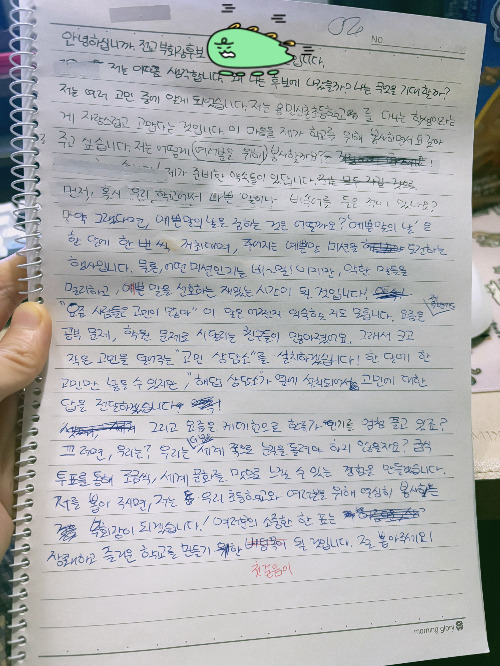 NO
안녕하십니까. 전교 부회장후보 입니다.
저는 이따금 생각합니다. 왜 나는 후보에 나왔을까? 나는 무엇을 기대할까?
저는 여러 고민 중에 알게 되었습니다. 저는 를 다니는 학생이라는
게 자랑스럽고 고맙다는 것입니다. 이 마음을 제가 학교를 위해 봉사하면서
주고 싶습니다. 저는 어떻게 (여러분을 위해) 봉사할까요?
제가 준비한 약속들이 있습니다.
먼저, 혹시 우리 학교에서 나쁜 말이나 비속어를 들은 적이 있나요?
만약 그랬다면, 예쁜말의 날을 정하는 것은 어떨까요? '예쁜말의 날'은
한 달에 한 번씩 개최되며, 주어지는 예쁜말 미션을 도전하는
행사입니다. 물론, 어떤 미션인지는 비~밀! 이지만, 악한 말들을
멀리하고, 예쁜 말을 선호하는 재밌는 시간이 될 것입니다!
"요즘 사람들은 고민이 많아" 이 말은 어쩌면 익숙할 지도 모릅니다. 요즘은
공부 문제, 학원 문제로 시달리는 친구들이 많아졌어요. 그래서 크고
작은 고민을 덜어주는 "고민 상담소"를 설치하겠습니다! 한 달에 한
고민만 넣을 수 있지만, "해답 상담소"가 옆에 설치되어서 고민에 대한
답을 전달하겠습니다.
그리고 요즘은 세계적으로 한국가 인기를 엄청 끌고 있죠?
그러면, 우리는? 우리는 세계 쪽으로 눈길을 돌려야 하지 않을까요? 급식
투표를 통해 세계 문화를 맛으로 느낄 수 있는 경험을 만들겠습니다.
저를 뽑아 주시면, 저는 우리 초등학교와 여러분을 위해 열심히 봉사하는
부회장이 되겠습니다! 여러분의 소중한 한 표는
쾌하고 즐거운 학교를 만들기 위한 될 것입니다. 꼭 뽑아주세요!
첫걸음이
morning glory